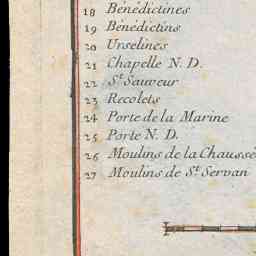 18 Bénédictines
19 Bénédictins
20 Urselines
21 Chapelle N. D.
22 St Sauveur
23 Recolets
24 Porte de la Marine
25 Porte N. D.
26 Moulins de la Chaussé
27 Moulins de St Servan